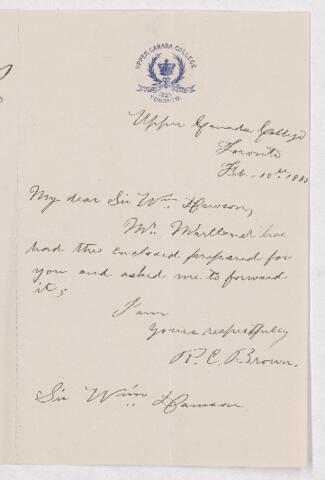 UPPER CANADA COLLEGE
1829
TORONTO
Upper Canada College
Toronto
Feb. 10th
My dear Sir Wm. Dawson,
Mr. has
had the enclosed prepared for
you and asked me to forward
it;
I am
Yours respectfully
R. C. Brown.
Sir Wm Dawson.